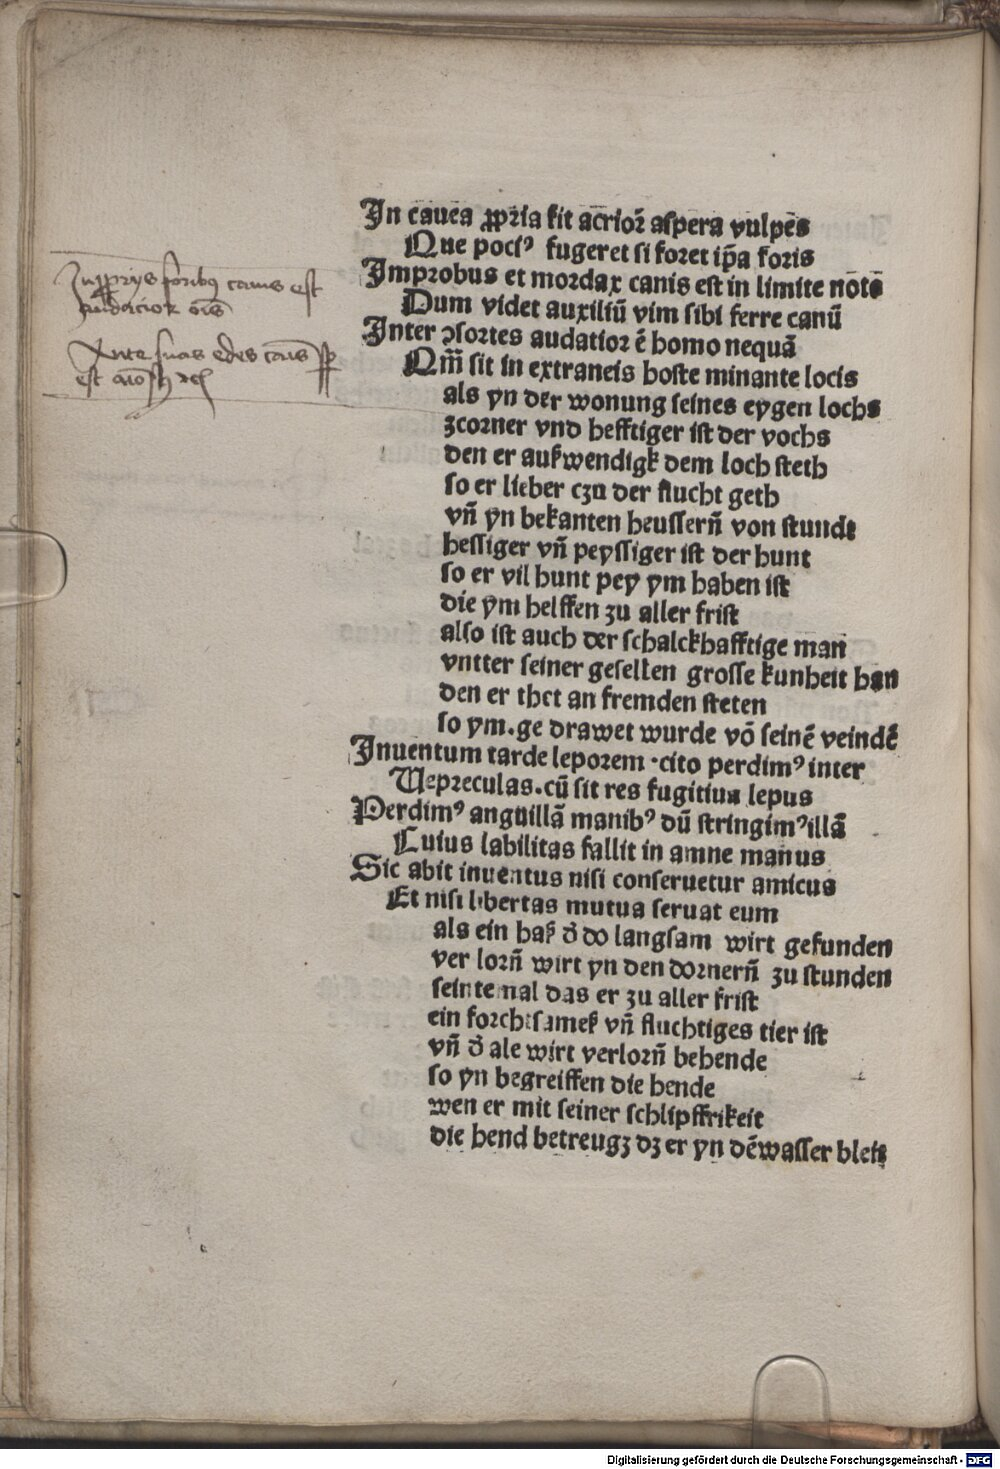 In caueā ꝓpria fit acrior̄ aspera vulpes
Que pociꝰ fugeret si foret ip̄a foris
Improbus et mordax canis est in limite nōtō
Dum videt auxiliū vim sibi ferre canū
Inter ↄsortes audatior ē homo nequā
Qm̄ sit in extraneis hoste minante locis
als yn der wonung seines eygen lochs
zcorner vnd hefftiger ist der vochs
den er außwendigk dem loch steth
so er lieber czu der flucht geth
vn̄ yn bekanten heussern̄ von stunde
hessiger vn̄ peyssiger ist der hunt
so er vil hunt pey ym haben ist
die ym helffen zu aller frist
also ist auch der schalckhafftige man
vntter seiner gesellen grosse kunheit han
den er thet an fremden steten
so ym.ge drawet wurde vō seinē veindē
Inuentum tarde leporem .cito perdimꝰ inter
Uepreculas.cū sit res fugitiua lepus
Perdimꝰ anguillā manibꝰ dū stringimꝰ illā
Cuius labilitas fallit in amne manus
Sic abit inuentus nisi conseruetur amicus
Et nisi libertas mutua seruat eum
als ein haß d̄ do langsam wirt gefunden
ver lorn̄ wirt yn den dornern̄ zu stunden
seintemal das er zu aller frist
ein forchtsameß vn̄ fluchtiges tier ist
vn̄ d̄ ale wirt verlorn̄ behende
so yn begreiffen die hende
wen er mit seiner schlipffrikeit
die hend betreugz dz er yn dē wasser bleib
In ꝓprys foribꝰ canis est
audacior oīs
Ante suas edes canis
est
Digitalisierung gefördert durch die Deutsche Forschungsgemeinschaft - DFG